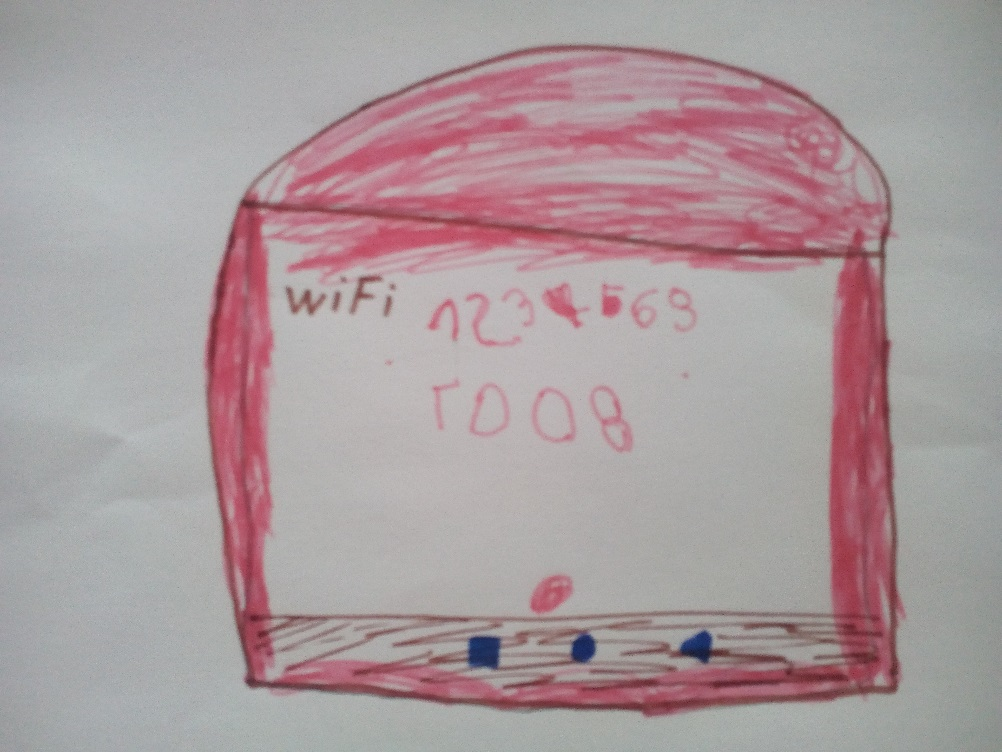 wiFi 1234569
1008